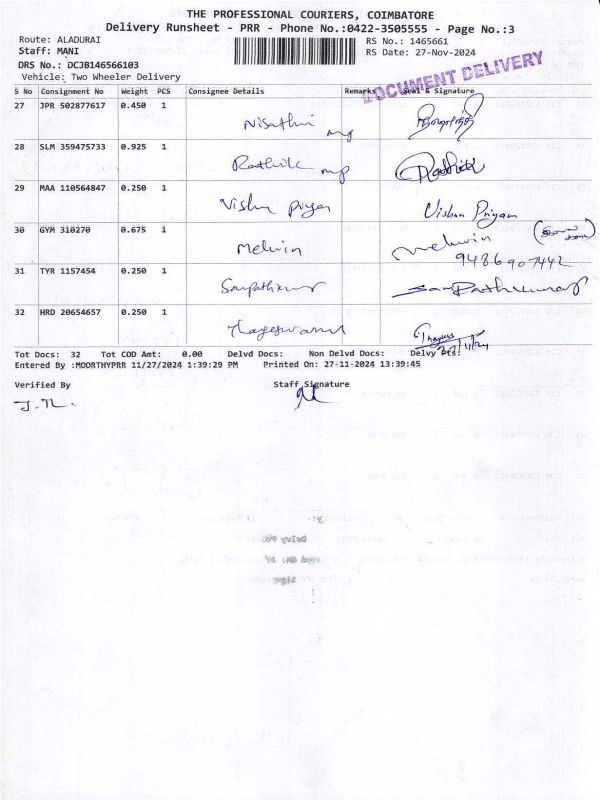 THE PROFESSIONAL COURIERS, COIMBATORE
Delivery Runsheet - PRR - Phone No.:0422-3505555 - Page No.:3
Route: ALADURAI
RS No.: 1465661
Staff: MANI
RS Date: 27-Nov-2024
DRS No.: DCJB146566103
Vehicle: Two Wheeler Delivery
DOCUMENT DELIVERY
S No Consignment No Weight PCS Consignee Details Remarks Seal & Signature
27 JPR 502877617 0.450 1 Nisathni
28 SLM 359475733 0.925 1 Rathik Rathik
29 MAA 110564847 0.250 1 Vishnu Priyan Vishnu Priyan
30 GYM 310270 0.675 1 Melwin Melwin
9486907442
31 TYR 1157454 0.250 1 Sampathkumar Sampathkumar
32 HRD 20654657 0.250 1
Tot Docs: 32 Tot COD Amt: 0.00 Delvd Docs: Non Delvd Docs: Delvy Pts:
Entered By :MOORTHYPRR 11/27/2024 1:39:29 PM Printed On: 27-11-2024 13:39:45
Verified By Staff Signature